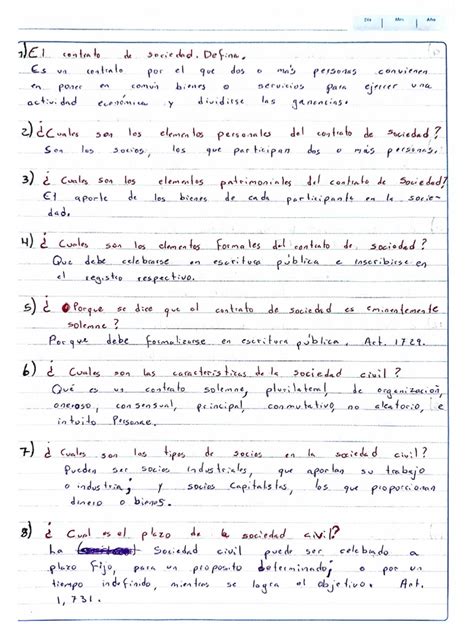 Día Mes Año
1) El contrato de sociedad. Defina.
Es un contrato por el que dos o más personas convienen
en poner en común bienes o servicios para ejercer una
actividad económica y dividirse las ganancias.
2) ¿Cuales son los elementos personales del contrato de sociedad?
Son los socios, los que participan dos o más personas.
3) ¿Cuales son los elementos patrimoniales del contrato de Sociedad?
El aporte de los bienes de cada participante en la socie-
dad.
4) ¿Cuales son los elementos formales del contrato de sociedad?
Que debe celebrarse en escritura pública e inscribirse en
el registro respectivo.
5) ¿Porque se dice que el contrato de sociedad es eminentemente
solemne?
Porque debe formalizarse en escritura pública. Art. 1729.
6) ¿Cuales son las características de la sociedad civil?
Qué es un contrato solemne, plurilateral, de organización,
oneroso, consensual, principal, conmutativo, no aleatorio, e
intuito Personae.
7) ¿Cuales son los tipos de socios en la sociedad civil?
Pueden ser socios industriales, que aportan su trabajo
o industria; y socios Capitalistas, los que proporcionan
dinero o bienes.
8) ¿Cual es el plazo de la sociedad civil?
La Sociedad civil puede ser celebrado a
plazo fijo, para un proposito determinado; o por un
tiempo indefinido, mientras se logra el objetivo. Art.
1,731.